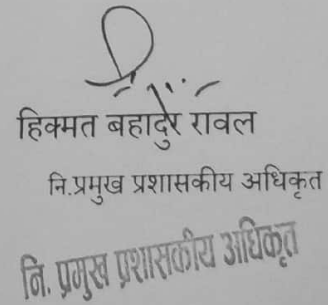 हिक्मत बहादुर रावल
नि.प्रमुख प्रशासकीय अधिकृत
नि. प्रमुख प्रशासकीय अधिकृत